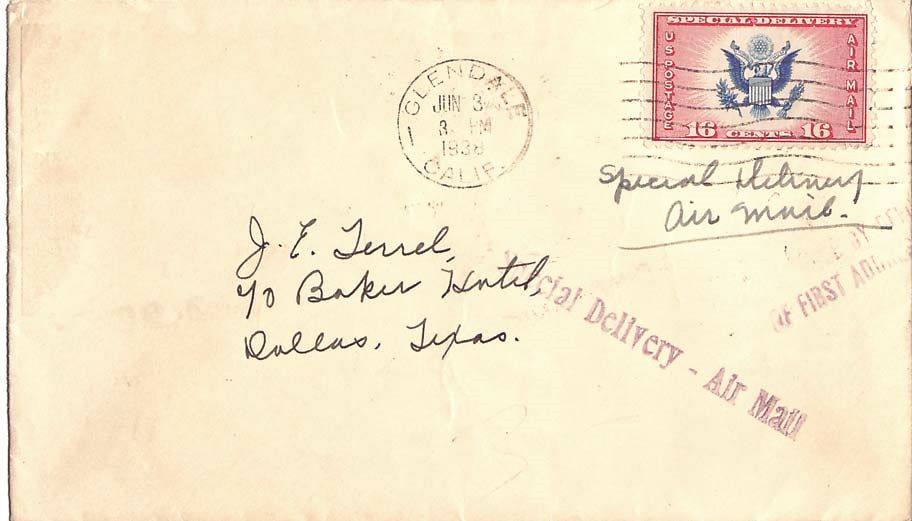 SPECIAL DELIVERY
US POSTAGE
AIR MAIL
16 CENTS 16
GLENDALE
JUN 3
3 PM
1938
CALIF.
Special Delivery
Air Mail.
J. E. Terrel,
℅ Baker Hotel,
Dallas, Texas.
Special Delivery - Air Mail
OF FIRST